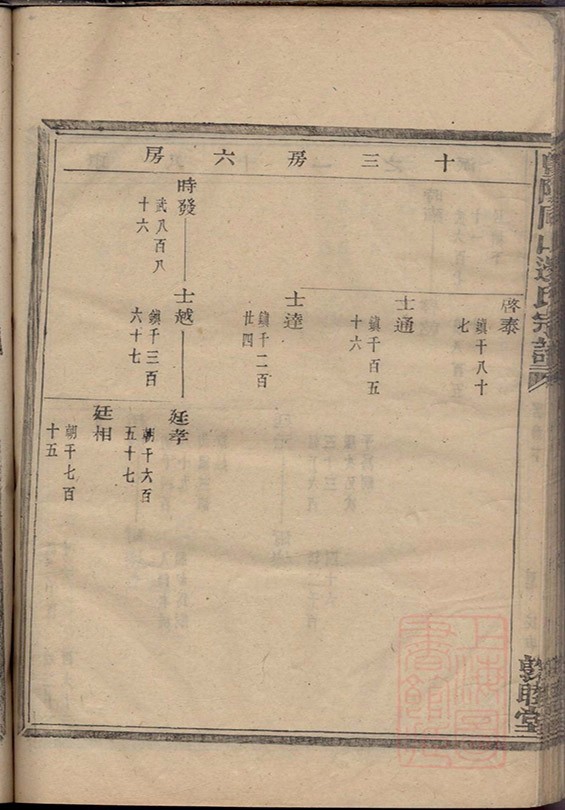 暨陽同山邊氏宗譜
敦睦堂
十三房六房
啓泰
鎮千八十
七
士通
鎮千百五
十六
士達
鎮千二百
廿四
時發
武八百八
十六
士越
鎮千三百
六十七
廷孝
朝千六百
五十七
廷相
朝千七百
十五
上海圖書館藏